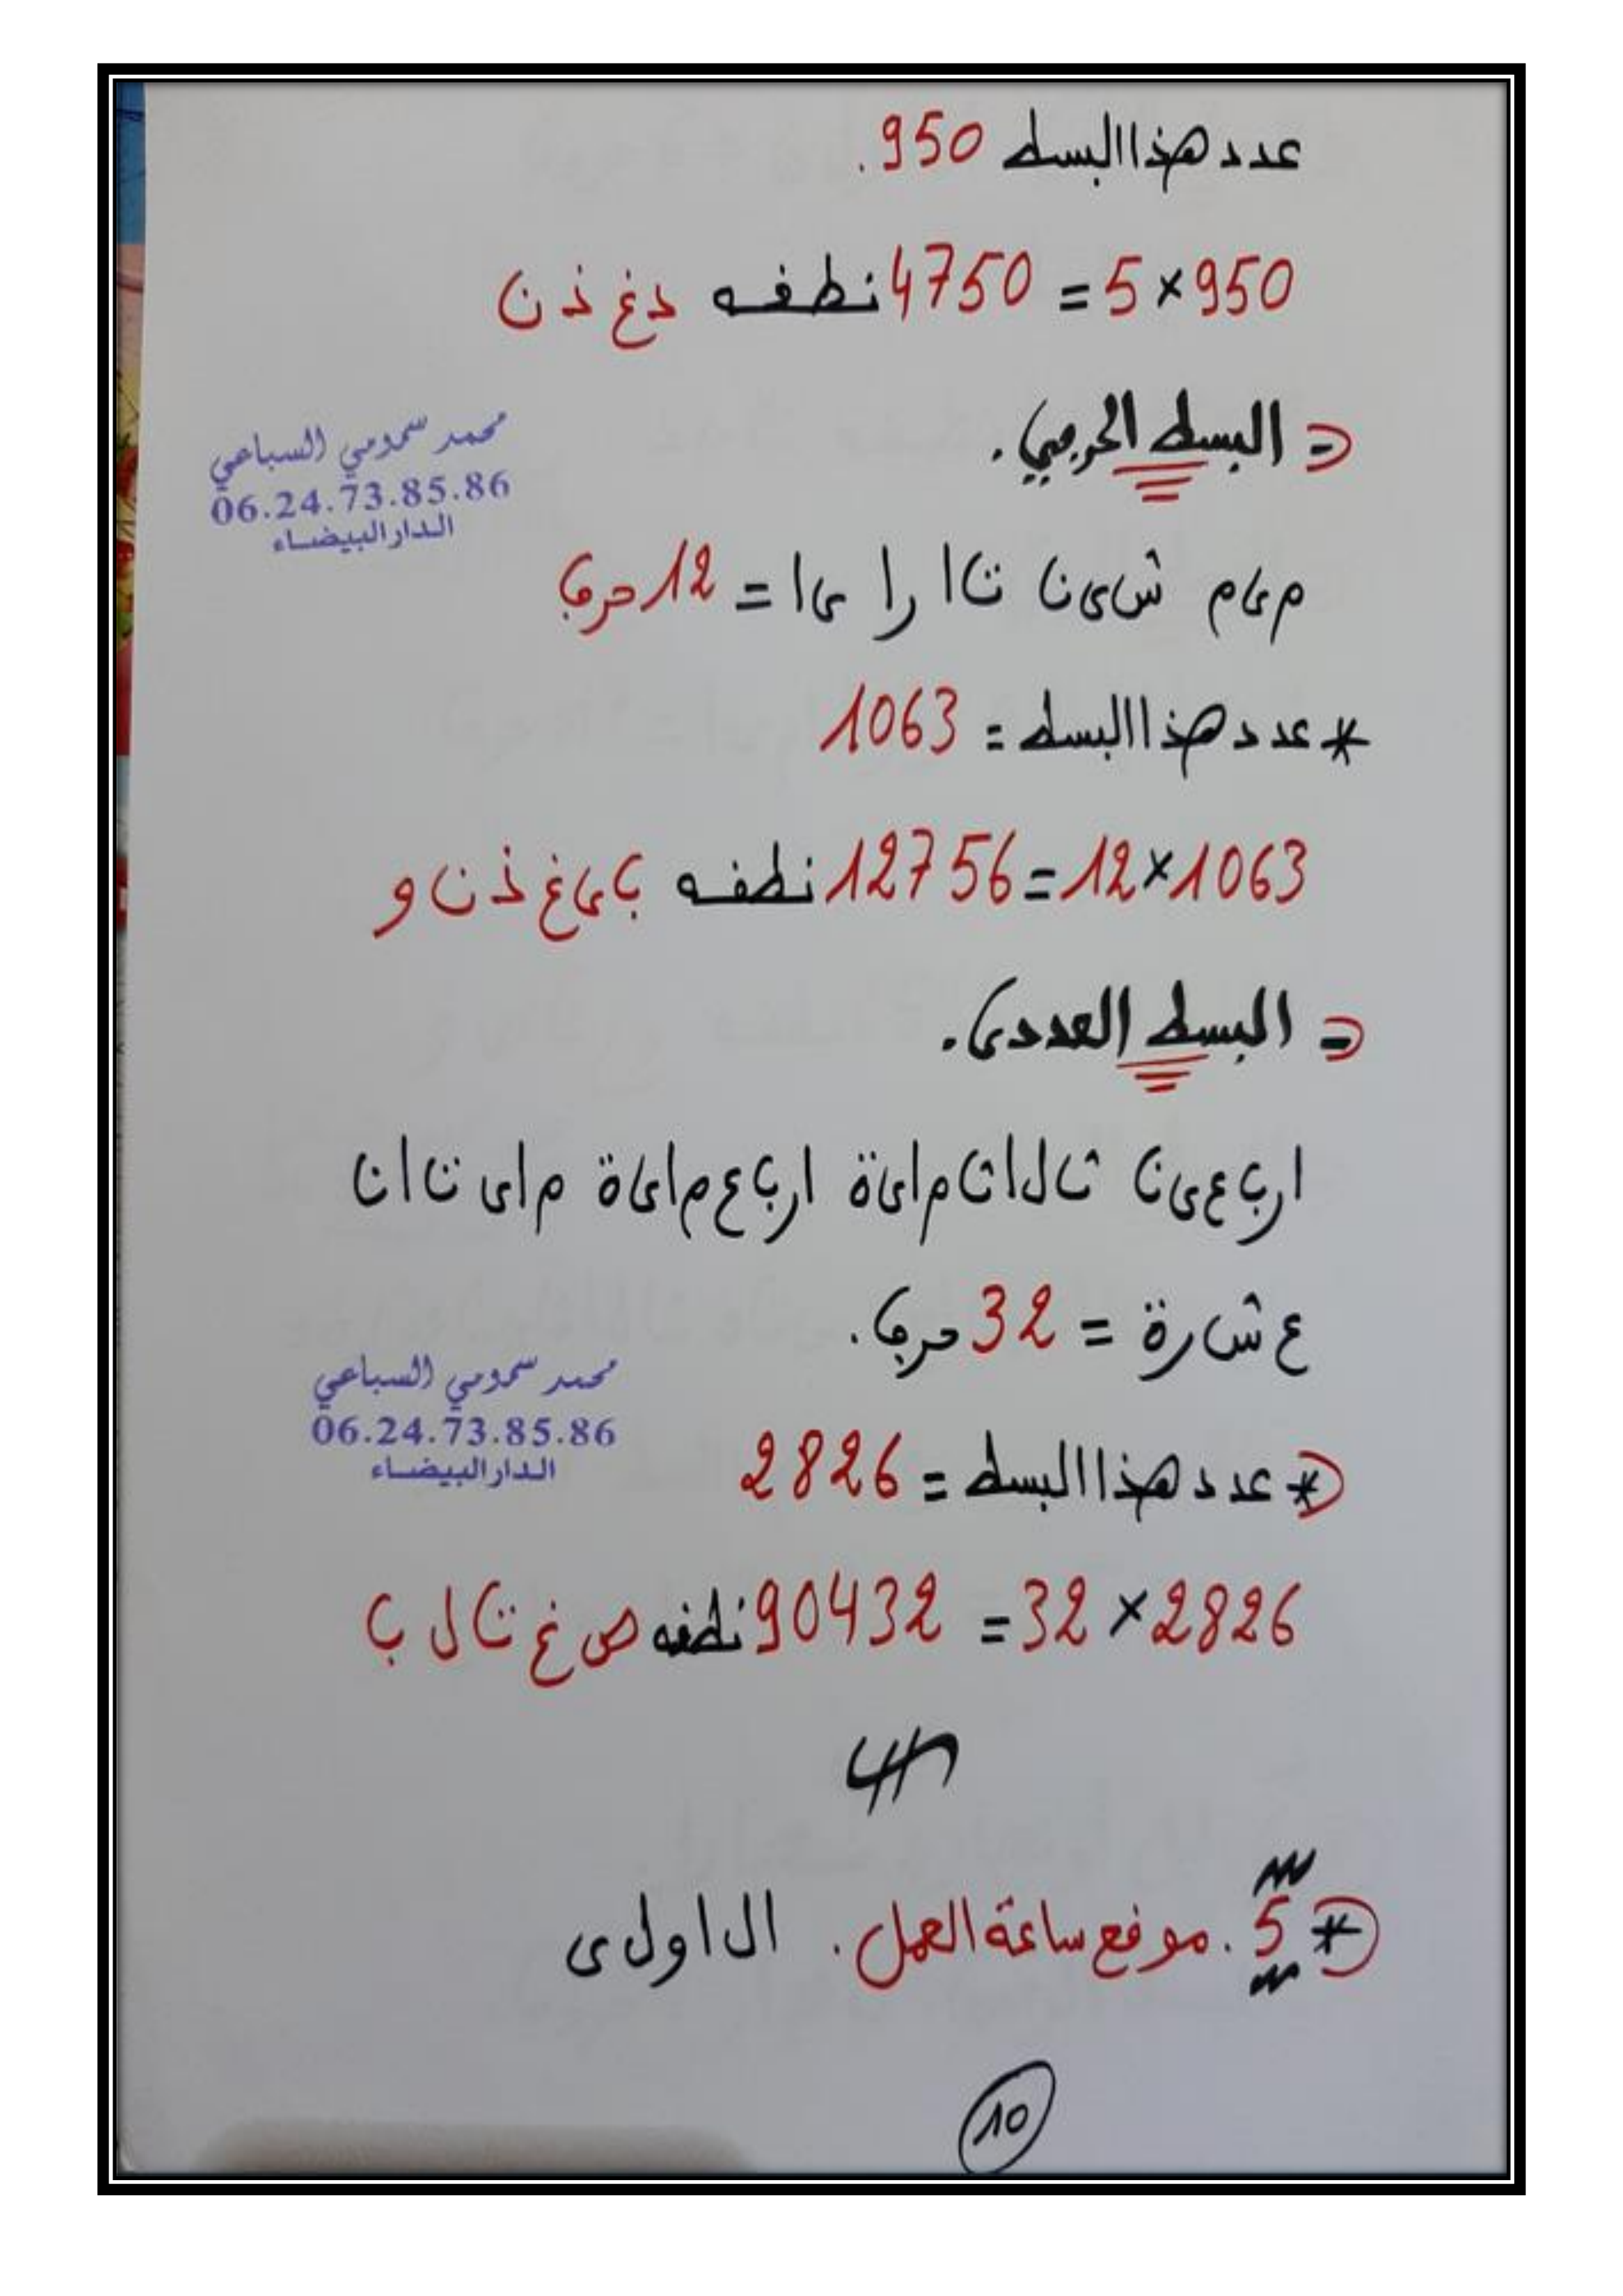 عدد هذا البسط 950.
950 × 5 = 4750 نطقه د غ ذ ن
= البسط الحرفي.
محمد سمومي السباعي
06.24.73.85.86
الدار البيضاء
م ى م ش ى ن ت ا ر ا ى ا = 12 حرفا
* عدد هذا البسط = 1063
1063 × 12 = 12756 نطقه ب ى غ ذ ن و
= البسط العددي.
ا ر ب ع ى ن ث ل ا ث م ا ى ة ا ر ب ع م ا ى ة م ا ى ت ا ن
ع ش ر ة = 32 حرفا.
محمد سمومي السباعي
06.24.73.85.86
الدار البيضاء
* عدد هذا البسط = 2826
2826 × 32 = 90432 نطقه ص غ ت ل ب
* 5. موقع ساعة العمل. ال ا و ل ى
10